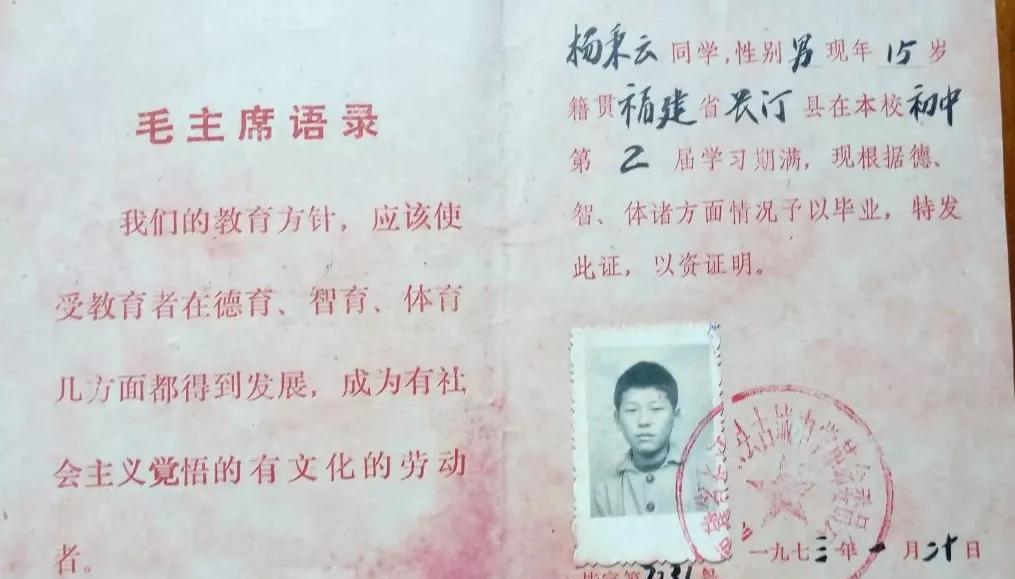 毛主席语录
我们的教育方针，应该使
受教育者在德育、智育、体育
几方面都得到发展，成为有社
会主义觉悟的有文化的劳动
者。
杨秉云同学，性别男现年15岁
籍贯福建省长汀县在本校初中
第2届学习期满，现根据德、
智、体诸方面情况予以毕业，特发
此证，以资证明。
一九七三年一月二十日
毕字第7231号